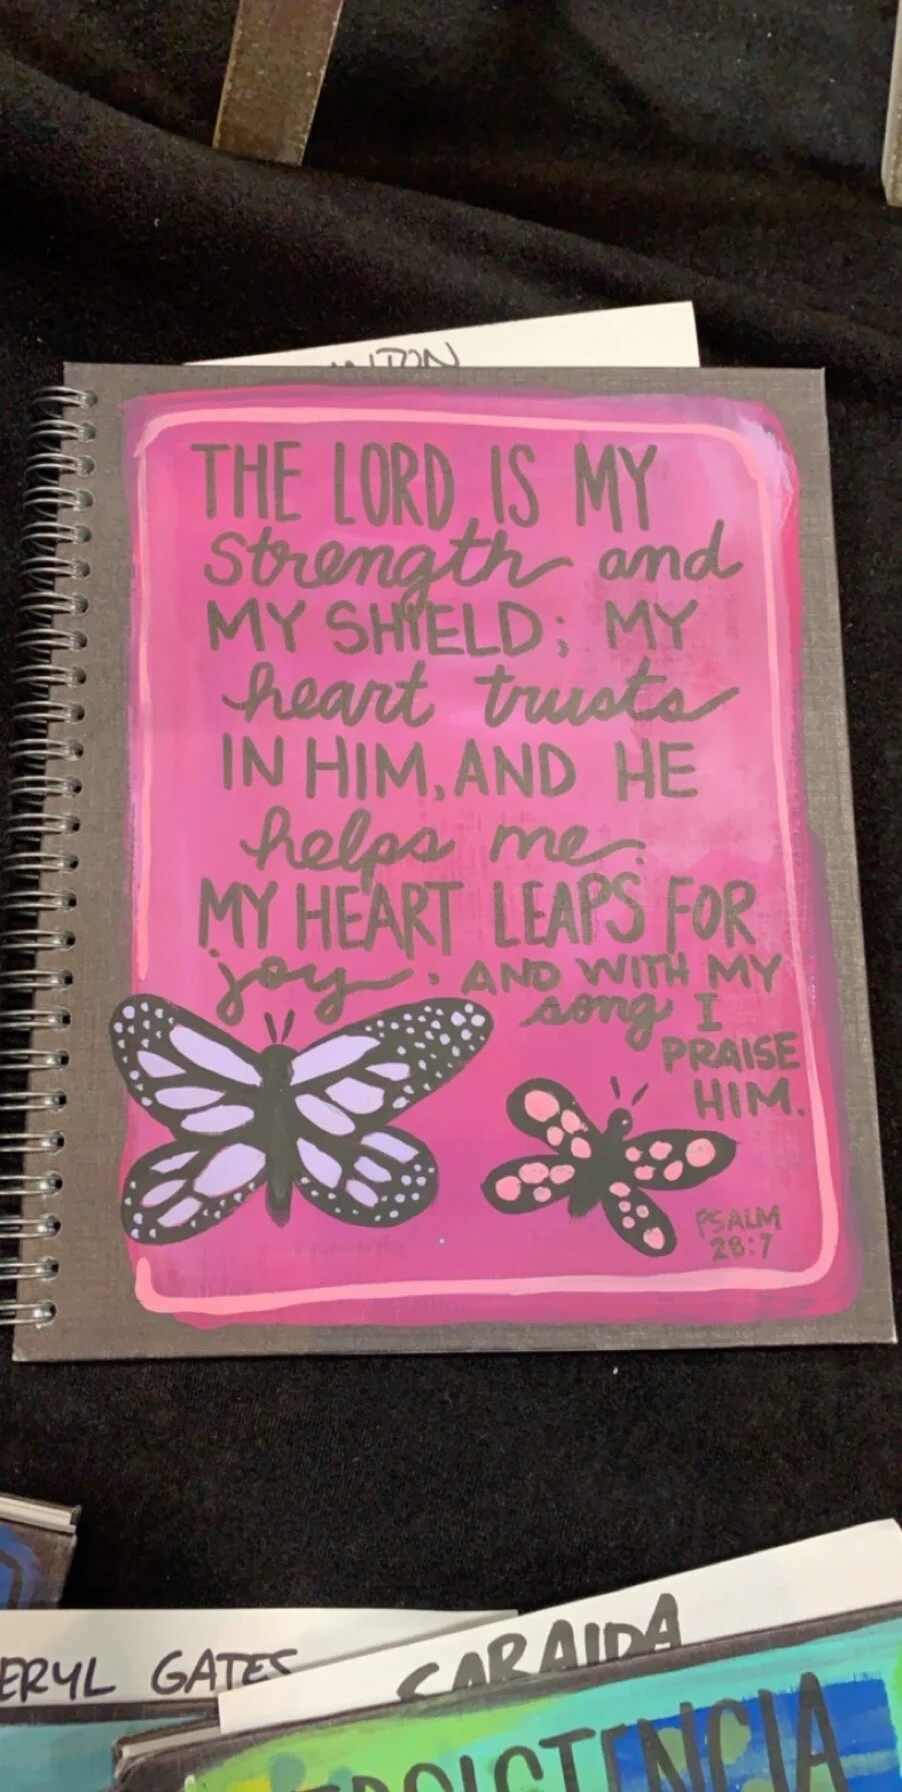 THE LORD IS MY
strength and
MY SHIELD; MY
heart trusts
IN HIM, AND HE
helps me.
MY HEART LEAPS FOR
joy. AND WITH MY
song I
PRAISE
HIM.
PSALM
28:7
GATES
SARAIDA